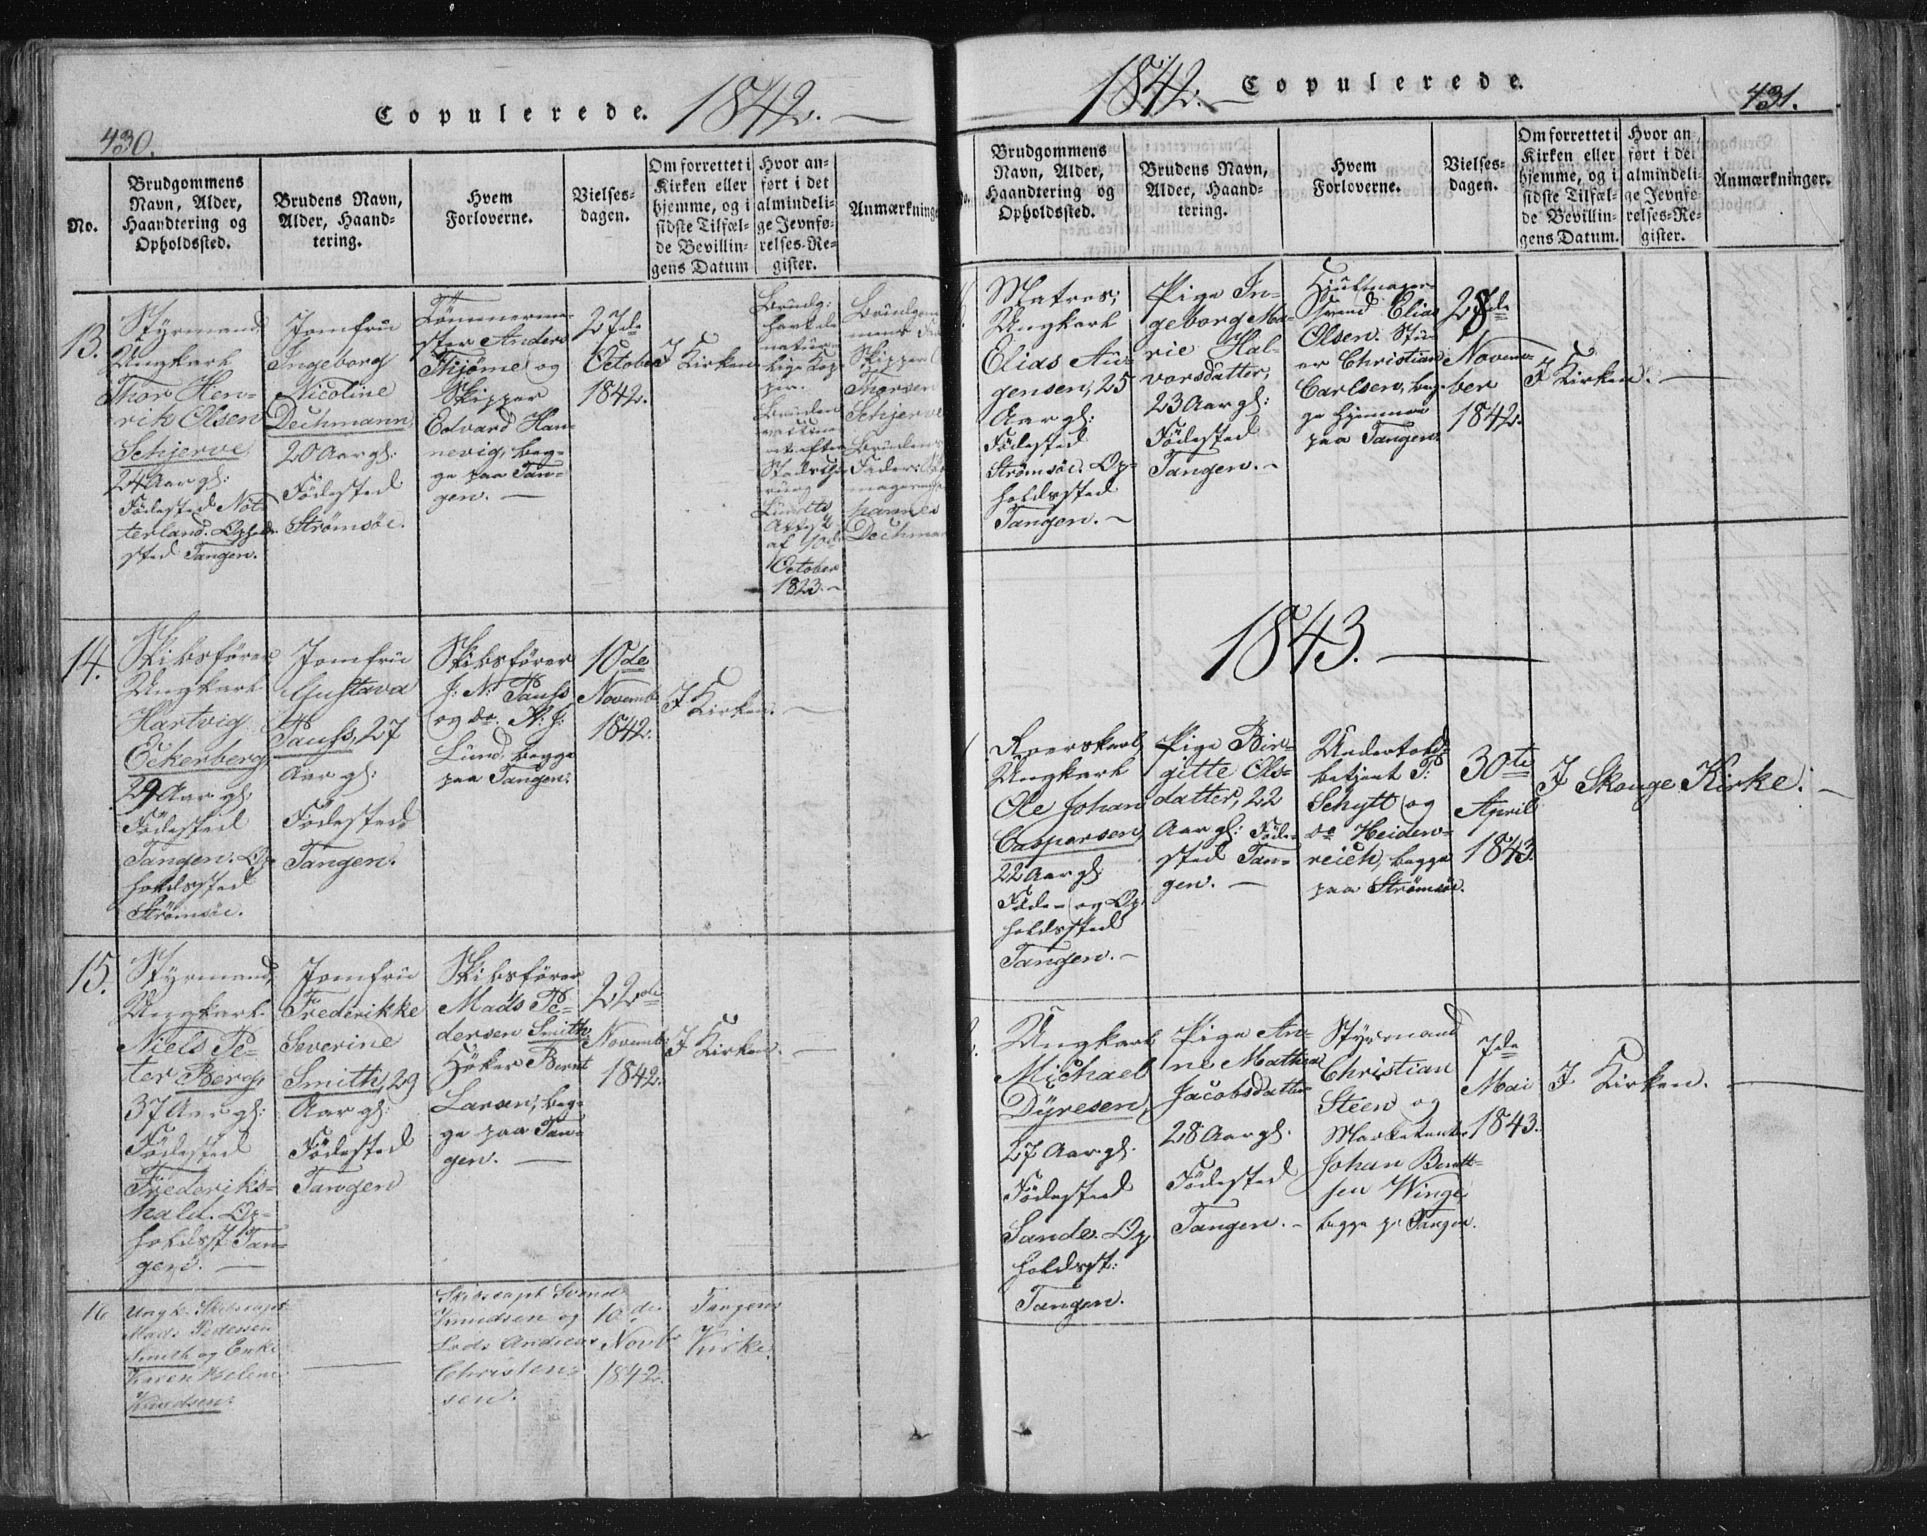 430.
Copulerede. 1842. —
No.
Brudgommens
Navn, Alder,
Haandtering og
Opholdssted.
Brudens Navn,
Alder, Haand-
tering.
Hvem
Forloverne.
Vielses-
dagen.
Om forrettet i
Kirken eller
hjemme, og i
sidste Tilfæl-
de Bevillin-
gens Datum
Hvor an-
ført i det
almindeli-
ge Jevnfø-
relses-Re-
gister.
Anmærkninge
13.
Styrmand
Ungkarl
Thor Hen-
rik Olsen
Schjerve
24 Aar gl:
Fødested Nöt-
terland. Opholds-
sted Tangen.
Jomfru
Ingeborg
Nicoline
Dechmann,
20 Aar gl:
Fødested
Strømsöe.
Tömmerme-
ster Anders
Thjøme og
Skipper
Edvard Han-
nevig, beg-
ge paa Tan-
gen. —
27de
October
1842.
I Kirken
Brudg:
havde
natur-
lige Kop-
per.
Bruden
October
1823. —
Skipper
Thorsen
Schjerve
Brudens
Fader:
hannes
Dechman
14.
Skibsfører
Ungkarl
Hartvig
Eckerberg
29 Aar gl:
Fødested
Tangen. Op-
holdssted
Strömsöe.
Jomfru
Gustava
Pauss, 27
Aar gl:
Fødested
Tangen.
Skibsfører
J: N: Pauss
og do. N: J:
Lund, begge
paa Tangen.
10de
Novemb.
1842.
I Kirken. —
15.
Styrmand,
Ungkarl
Niels Pe-
ter Berg,
37 Aar gl:
Fødested
Frederiks-
hald. Op-
holdsst: Tan-
gen. —
Jomfru
Frederikke
Severine
Smith, 29
Aar gl:
Fødested
Tangen
Skibsfører
Mads Pe-
dersen Smith
Höker Bernt
Larsen, beg-
ge paa Tan-
gen. —
22de
Novemb:
1842.
I Kirken. —
16
Ungk. Skibscapt
Mads Pedersen
Smith og Enke
Karen Helene
Knudsen.
—
Skibscapt Svend
Knudsen og
Lods Andreas
Christen-
sen.
10de
Novb.
1842.
Tangens
Kirke.
1842. — Copulerede.
431.
No.
Brudgommens
Navn, Alder,
Haandtering og
Opholdssted.
Brudens Navn,
Alder, Haand-
tering.
Hvem
Forloverne.
Vielses-
dagen.
Om forrettet i
Kirken eller
hjemme, og i
sidste Tilfæl-
de Bevillin-
gens Datum.
Hvor an
ført i det
almindeli-
ge Jevnfø-
relses-Re-
gister.
Anmærkninger.
Matros,
Ungkarl
Elias Au-
gensen, 25
Aar gl:
Fødested
Strømsöe. Op-
holdssted
Tangen. —
Pige In-
geborg Ma-
rie Hal-
vorsdatter,
23 Aar gl:
Fødested
Tangen. —
Hjulmager
Svend Elias
Olsen. Stu-
er Christian
Carlsen, beg-
ge hjemme
paa Tangen.
28de
Novem-
ber
1842.
I Kirken. —
1843. —
Roerskarl,
Ungkarl
Ole Johan
Caspersen,
22 Aar gl:
Føde- og Op-
holdssted
Tangen. —
Pige Bir-
gitte Ols-
datter, 22
Aar gl: Føde-
sted Tan-
gen. —
Undertold-
betjent P:
Schytt og
do Heiden-
reich, begge
paa Strömsöe.
30te
April
1843.
I Skouge Kirke. —
Ungkarl
Michael
Dyresen,
27 Aar gl:
Fødested
Sande. Op-
holdsst:
Tangen.
Pige An-
ne Mathea
Jacobsdatter
28 Aar gl:
Fødested
Tangen. —
Styrmand
Christian
Steen og
Marketenter
Johan Bernt-
sen Winge
begge p: Tangen.
7de
Mai
1843.
I Kirken. —